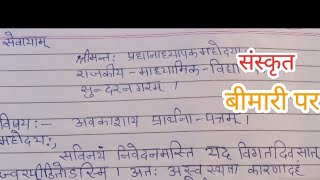 सेवायाम्
श्रीमन्तः प्रधानाध्यापकमहोदया
राजकीय-माध्यामिक-विद्या
सुन्दरनगरम् ।
संस्कृत
बीमारी पर
विषय:- अवकाशाय प्रार्थना-पत्रम् ।
महोदय:,
सविनयं निवेदनमस्ति यद् विगतदिवसात्
ज्वरपीडितोऽस्मि । अतः अस्वस्थता कारणादहं